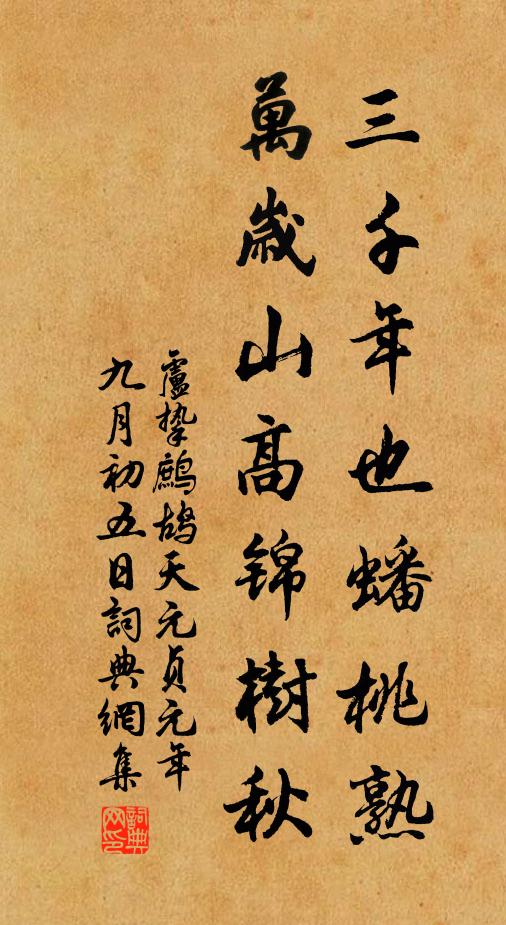 三千年也蟠桃熟
萬歲山高錦樹秋
盧摯鷓鴣天元貞元年
九月初五日詞典網集
詞典网印